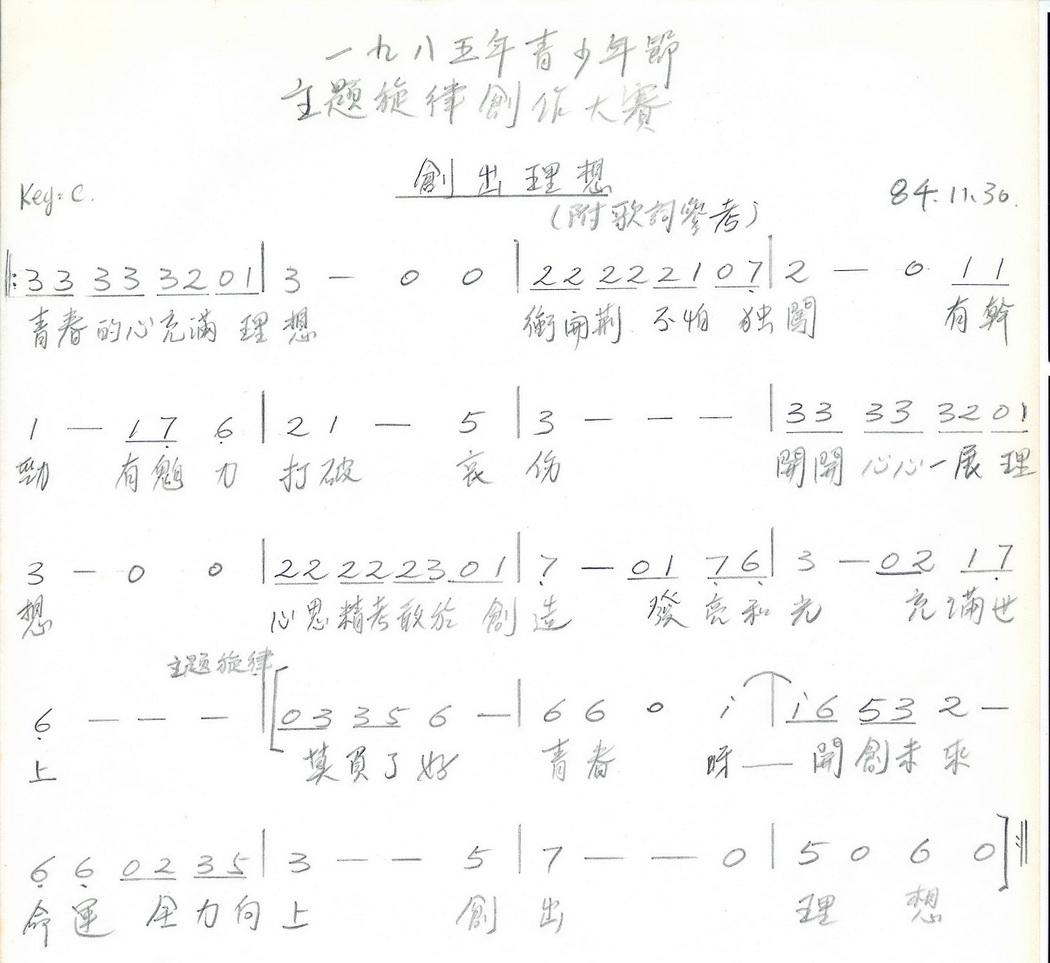 一九八五年青少年節
主題旋律創作大賽
創出理想
(附歌詞參考)
Key=C.
84.11.30.
‖: 33 33 32 01 | 3 — 0 0 | 22 22 21 07̣ | 2 — 0 11
青春的心充滿理想 衝開荆不怕独闖 有幹
1 — 17̣ 6̣ | 2 1 — 5 | 3 — — — | 33 33 32 01
勁 有魄力 打破 哀 伤 開開心心一展理
3 — 0 0 | 22 22 23 01 | 7̣ — 01 7̣6̣ | 3 — 02 17̣
想 心思精考敢於創造 發亮和光 充滿世
主題旋律
6̣ — — — | [ 03 35 6 — | 6 6 0 i | i6 53 2 —
上 莫負了好 青春 呀 — 開創未來
6̣ 6̣ 02 35 | 3 — — 5 | 7 — — 0 | 5 0 6 0 ] :‖
命運 全力向上 創 出 理 想